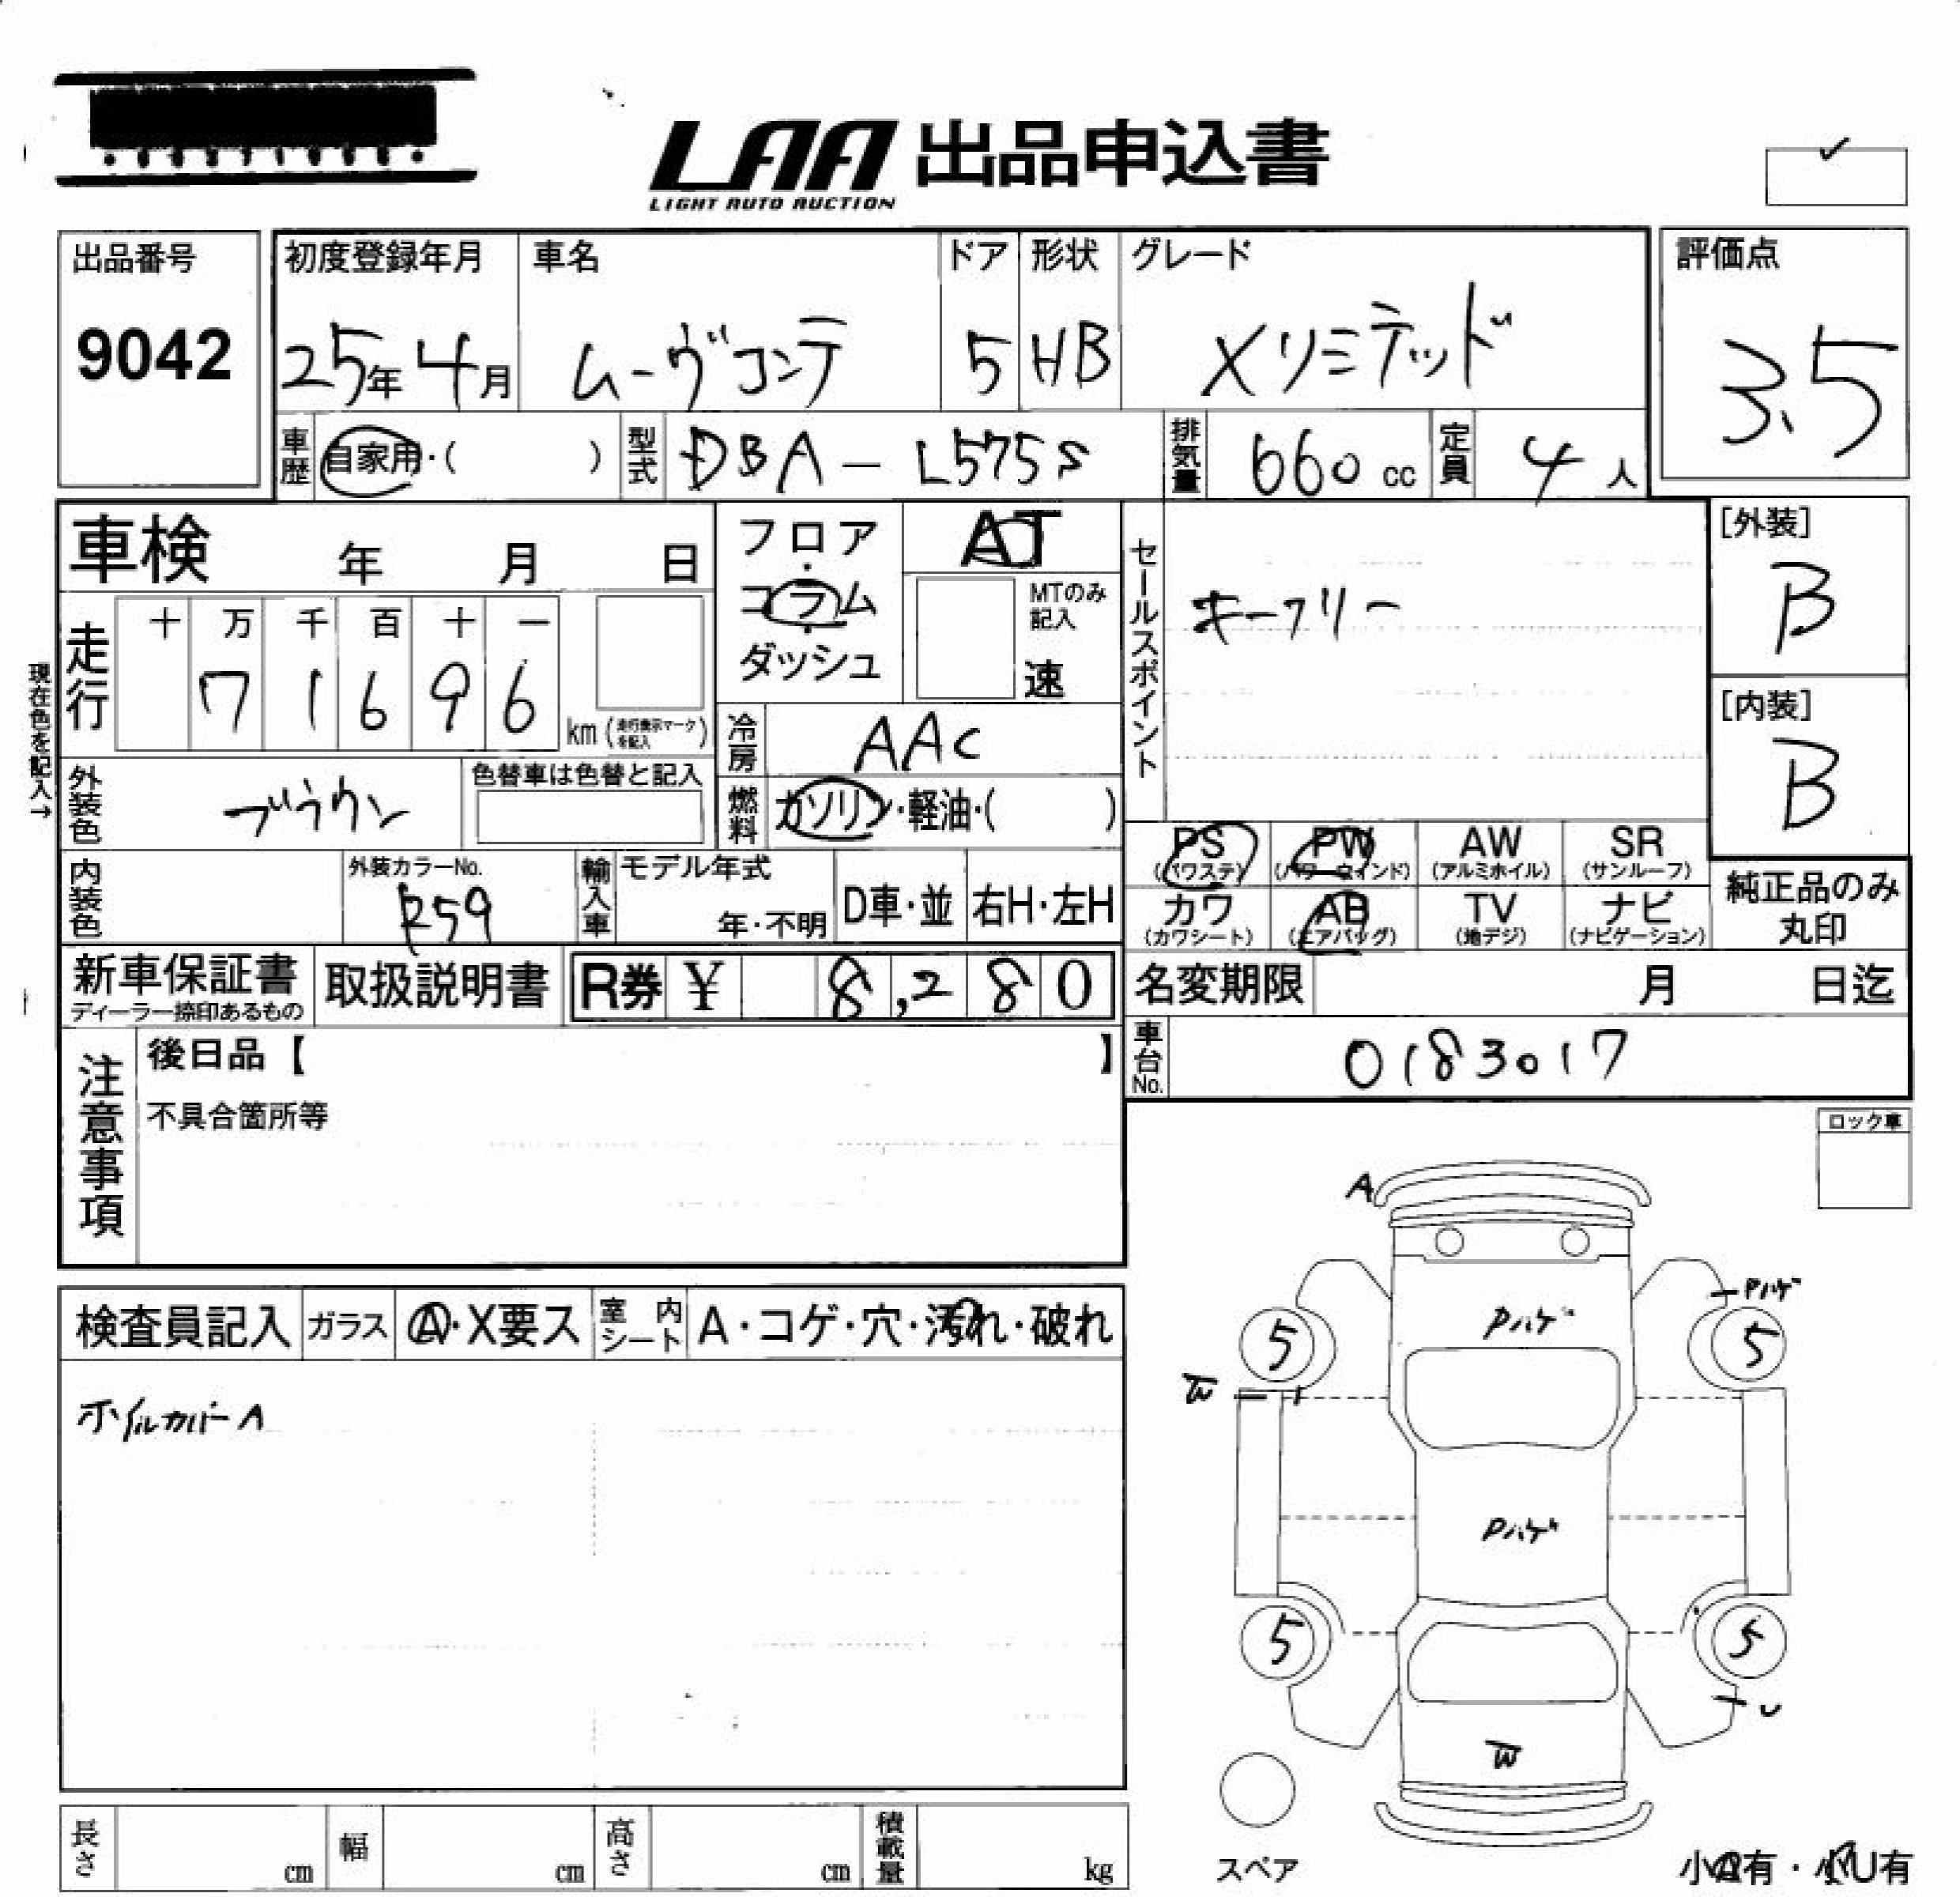 LAA 出品申込書
LIGHT AUTO AUCTION
出品番号 初度登録年月 車名 ドア 形状 グレード 評価点
9042 25年 4月 ムーヴコンテ 5 HB Xリミテッド 3.5
車歴 自家用・( ) 型式 DBA-L575S 排気量 660 cc 定員 4 人
車検 年 月 日
フロア・コラム・ダッシュ
AT
MTのみ記入
速
セールスポイント
キーフリー
[外装]
B
[内装]
B
現在色を記入→
走行 十 万 千 百 十 一
7 1 6 9 6 km (走行表示マークを記入)
冷房 AAC
外装色 ブラウン 色替車は色替と記入
燃料 ガソリン・軽油・( )
PS (パワステ) PW (パワーウィンド) AW (アルミホイル) SR (サンルーフ)
カワ (カワシート) AB (エアバッグ) TV (地デジ) ナビ (ナビゲーション)
純正品のみ丸印
内装色 外装カラーNo. R59 輸入車 モデル年式 年・不明 D車・並 右H・左H
新車保証書 ディーラー捺印あるもの 取扱説明書 R券 ¥ 8,280
名変期限 月 日迄
車台No. 0183017
注意事項
後日品【 】
不具合箇所等
ロック車
検査員記入 ガラス A・X要ス 室内シート A・コゲ・穴・汚れ・破れ
ホイルカバーA
A
Pハゲ
Pハゲ
5 5
W
Pハゲ
5 5
U
W
スペア
長さ cm 幅 cm 高さ cm 積載量 kg
小A有・小U有